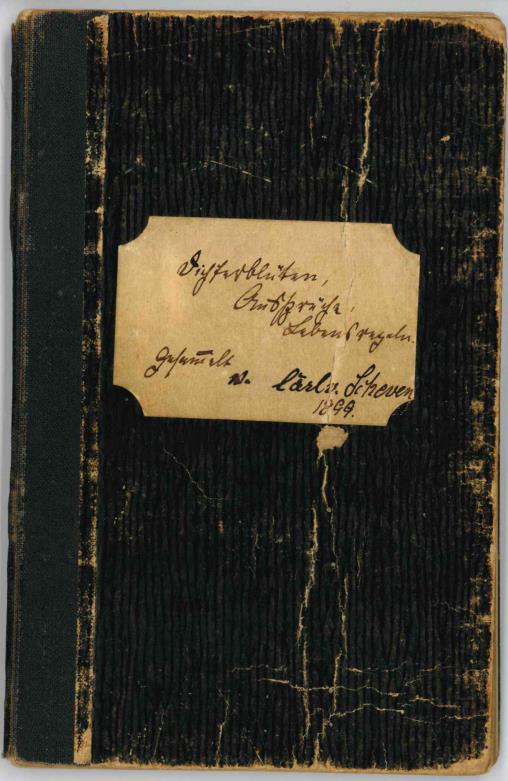 Dichterblüten,
Aussprüche,
Lebensregeln.
Gesam̅elt
v. Carl v. Scheven
1899.